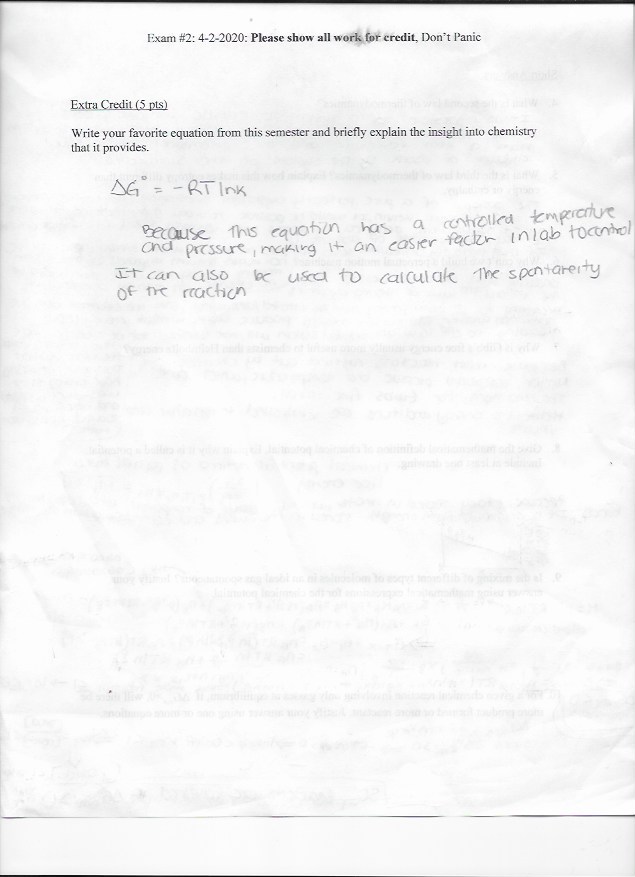 Exam #2: 4-2-2020: Please show all work for credit, Don't Panic
Extra Credit (5 pts)
Write your favorite equation from this semester and briefly explain the insight into chemistry
that it provides.
ΔG° = -RT lnk
Because this equation has a controlled temperature
and pressure, making it an easier factor in lab to control
It can also be used to calculate the spontareity
of the reaction